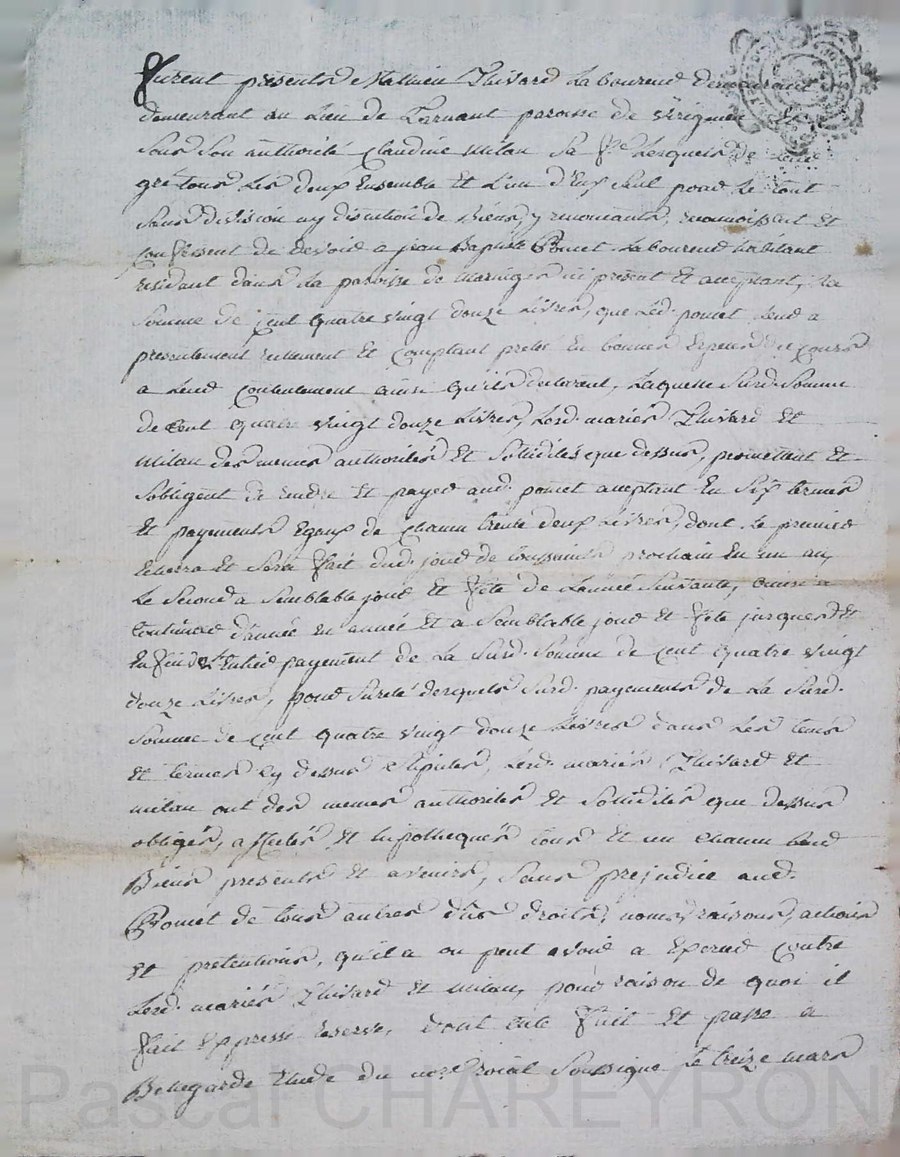 furent presents Mathieu Thivard laboureur demeurant
demeurant au Lieu de Larnaut paroisse de
sous son authorité Claudine Milan sa f.e lesquels de leur
gré tous les deux Ensemble et L'un d'Eux seul pour le tout
sans division ny discution de Biens, y renonceants, reconnoissent et
confessent de devoir a jean Baptiste Poncet laboureur habitant
residant dans la paroisse de maringes icy present et acceptant, la
somme de Cent quatre vingt douze Livres, que led. poncet leur a
presentement reellement et Comptant preté En bonnes Especes de Cours
a leur Contentement ainsi qu'ils declarent, Laquelle Surd. Somme
de Cent quatre vingt douze Livres, lesd. mariés Thivard et
Milan des memes authorités et sollidités que dessus, promettent et
s'obligent de rendre et payer aud. poncet acceptant En Six termes
et payements Egaux de Chacun trente deux Livres, dont le premier
Echerra et sera fait dud. jour de toussaints prochain En un an,
Le Second a semblable jour et fête de L'année Suivante, ainsi a
Continuer d'année En année et a semblable jour et fête jusques et
En fin d'Entier payement de La Surd. Somme de Cent quatre vingt
douze Livres, pour sureté desquels Surd. payements de La Surd.
somme de Cent quatre vingt douze Livres dans Les tems
et termes cy dessus stipulés, lesd. mariés Thivard et
milan ont des memes authorités et sollidités que dessus
obligés, affectés et hipothequés tous et un chacun leurs
Biens presents et avenirs, sans prejudice aud.
Poncet de tous autres dûs droits, noms, raisons, actions
et pretentions, qu'il a ou peut avoir a Exercer Contre
lesd. mariés Thivard et Milan, pour raison de quoi il
fait Expresse reserve, dont acte fait et passé a
Bellegarde Etude du no.re roial soussigné le treize mars
Pascal CHAREYRON